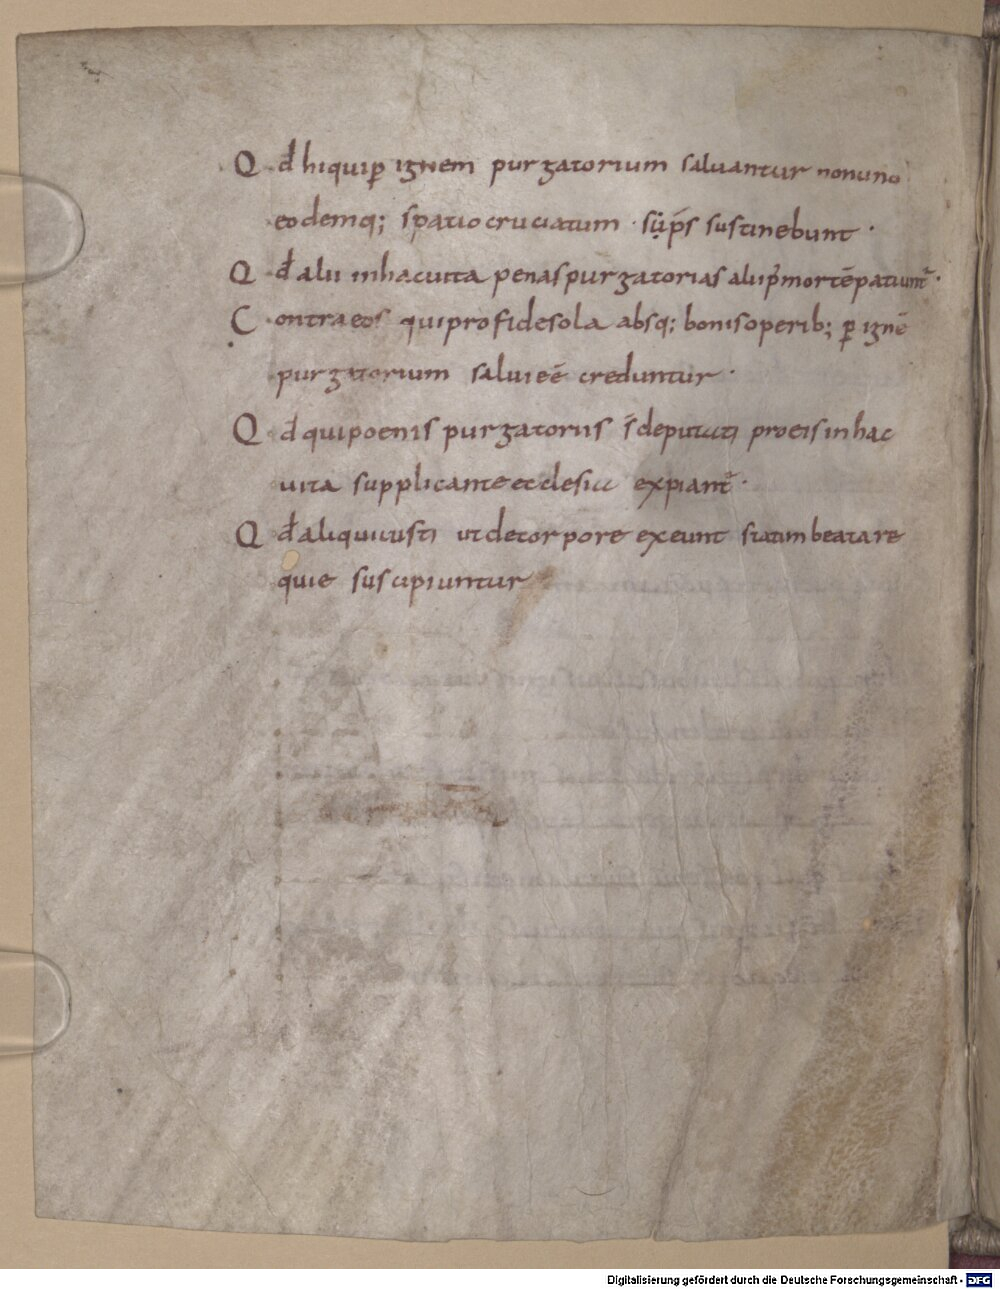 Qđ hi qui ꝑ ignem purgatorium saluantur non uno
eodemq; spatio cruciatum · sustinebunt ·
Qđ alii in hac uita penas purgatorias alii p̄ mortē patiunt᷑ ·
Contra eos qui pro fide sola absq; bonis operib; ꝑ ignē
purgatorium salui eē creduntur ·
Qđ qui poenis purgatoriis s̄ deputati pro eis in hac
uita supplicante ecclesia expiant᷑ ·
Qđ aliqui iusti ut de corpore exeunt statim beata re
quie suscipiuntur
Digitalisierung gefördert durch die Deutsche Forschungsgemeinschaft - DFG